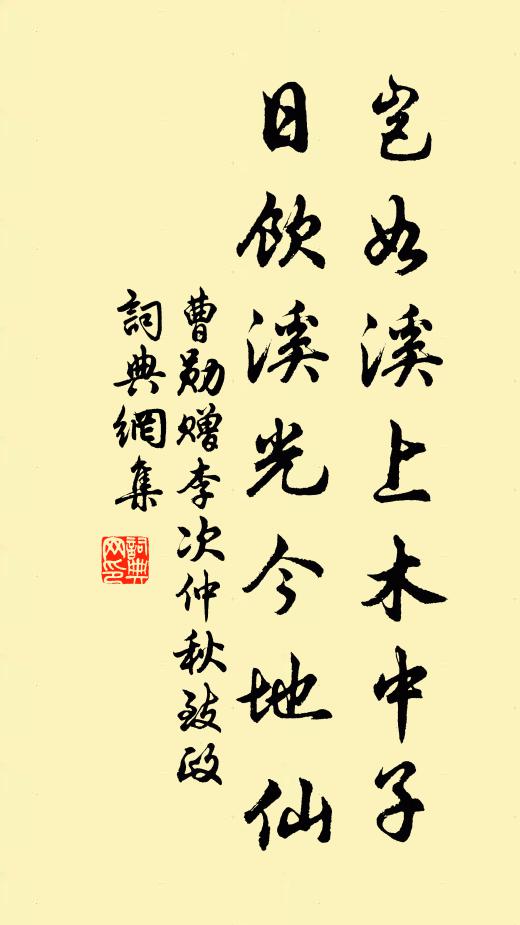 岂如溪上木中子
日饮溪光今地仙
曹勋赠李次仲秋致政
詞典網集
詞典网印